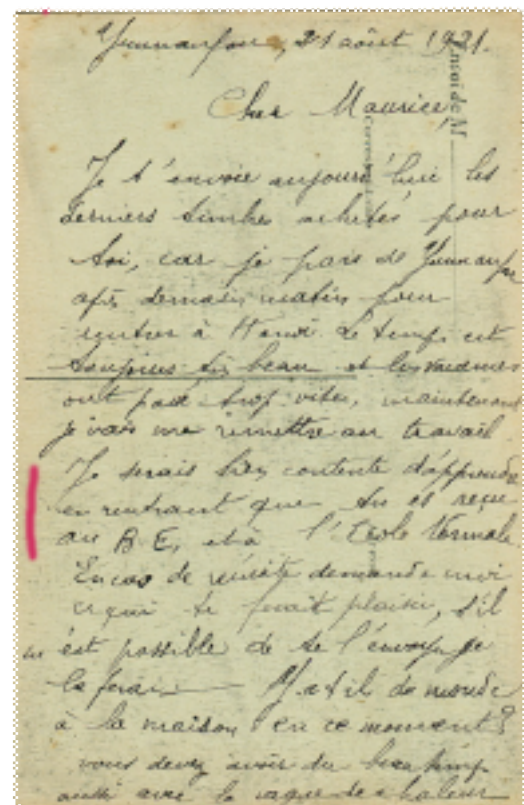 Yunnanfou, 21 août 1921.
Cher Maurice,
Je t'envoie aujourd'hui les
derniers timbres achetés pour
toi, car je pars de Yunnanfou
après demain matin pour
rentrer à Hanoï. Le temps est
toujours très beau et les vacances
ont passé trop vites, maintenant
je vais me remettre au travail
Je serais bien contente d'apprendre
en rentrant que tu es reçu
au B.E, et à l'Ecole Normale
En cas de réussite demande moi
ce qui te ferait plaisir, s'il
m'est possible de te l'envoyer je
le ferai — Y a t il du monde
à la maison en ce moment?
vous devez avoir du beau temps
aussi avec la vague de chaleur